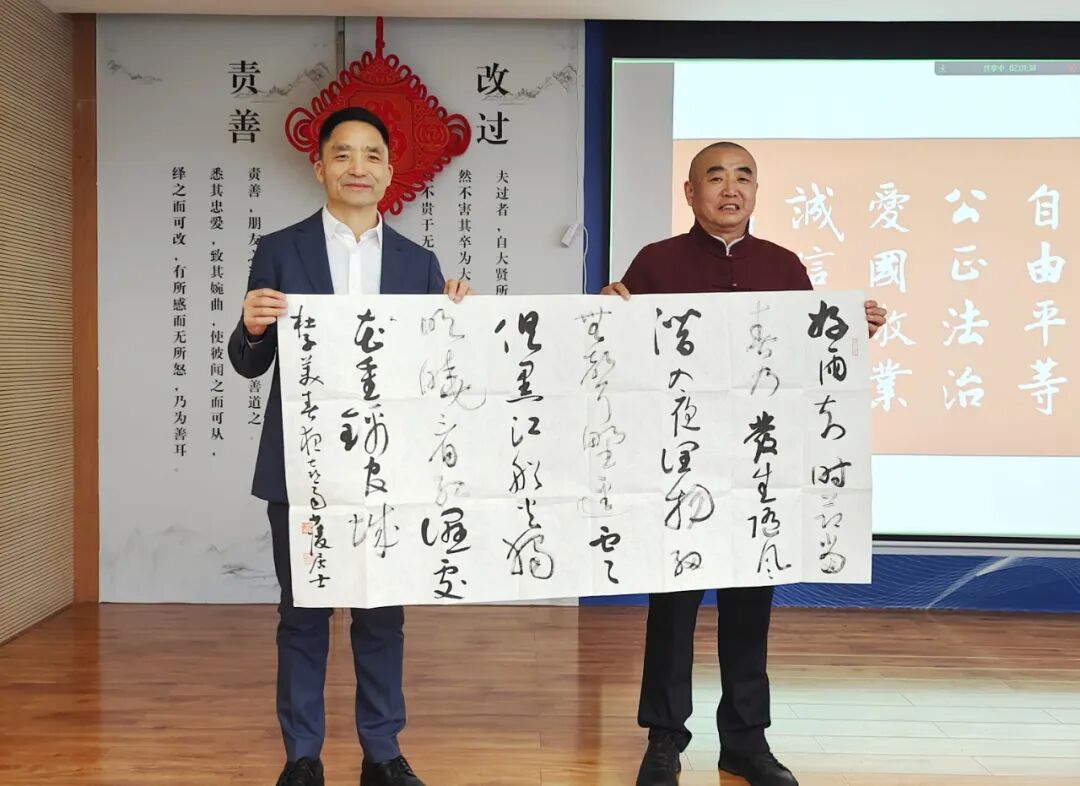 责善
责善，朋友
善道之
悉其忠爱，致其婉曲，使彼闻之而可从，
绎之而可改，有所感而无所怒，乃为善耳
改过
夫过者，自大贤所
然不害其卒为大
不贵于无
02:01:38
自由平等
公正法治
愛國敬業
誠信
好雨知时节当
春乃發生随风
潜入夜润物细
無聲野逕云
俱黑江船火獨
明晓看红湿处
花重锦官城
杜子美春夜喜雨 居士